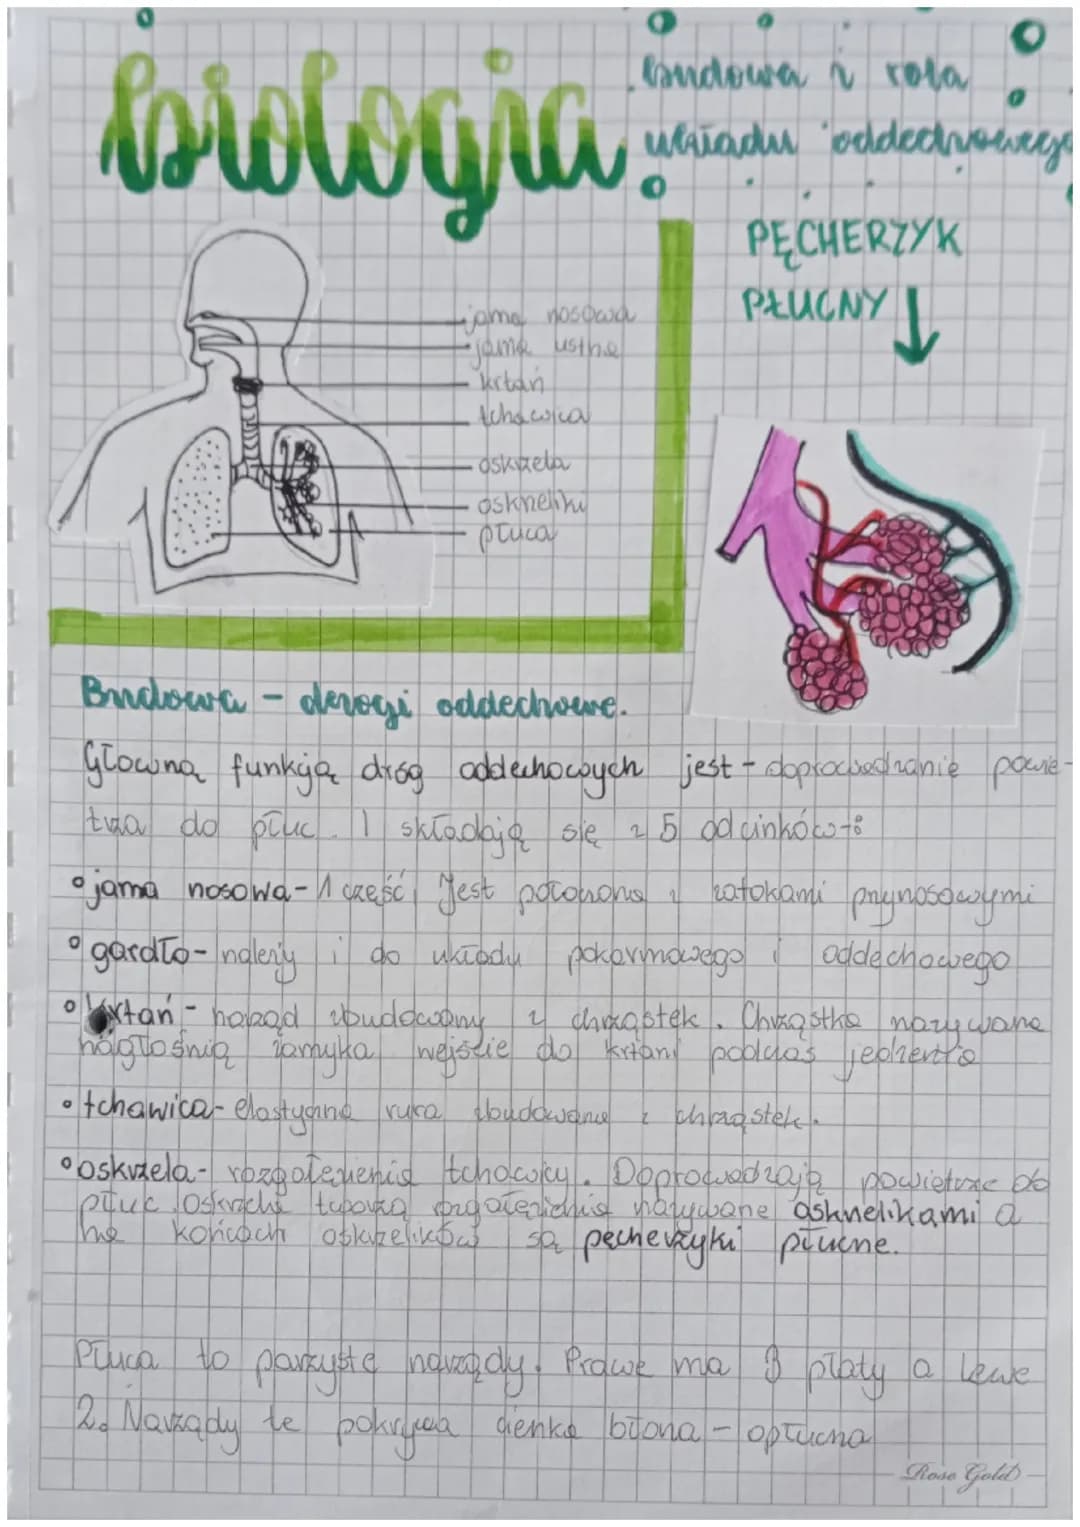 biologia
budowa i rola
układu oddechowego
PĘCHERZYK
PŁUCNY
jama nosowa
jama ustna
krtań
tchawica
oskrzela
oskrzeliki
płuca
Budowa - drogi oddechowe.
Główną funkcją dróg oddechowych jest - doprowadzanie powie-
trza do płuc. I składają się z 5 odcinków:
jama nosowa - 1 część, Jest połączona z zatokami przynosowymi
gardło - należy i do układu pokarmowego i oddechowego
krtań - narząd zbudowany z chrząstek. Chrząstka nazywana
nagłośnią zamyka wejście do krtani podczas jedzenia
tchawica - elastyczna rura zbudowana z chrząstek.
oskrzela - rozgałęzienia tchawicy. Doprowadzają powietrze do
płuc. Oskrzela tworzą rozgałęzienia nazywane oskrzelikami a
na końcach oskrzelików są pęcherzyki płucne.
Płuca to parzyste narządy. Prawe ma 3 płaty a lewe
2. Narządy te pokrywa cienka błona - opłucna
Rose Gold